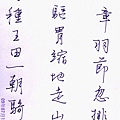 章羽節忽排
驅胃縮地走山
種玉田一朝騎